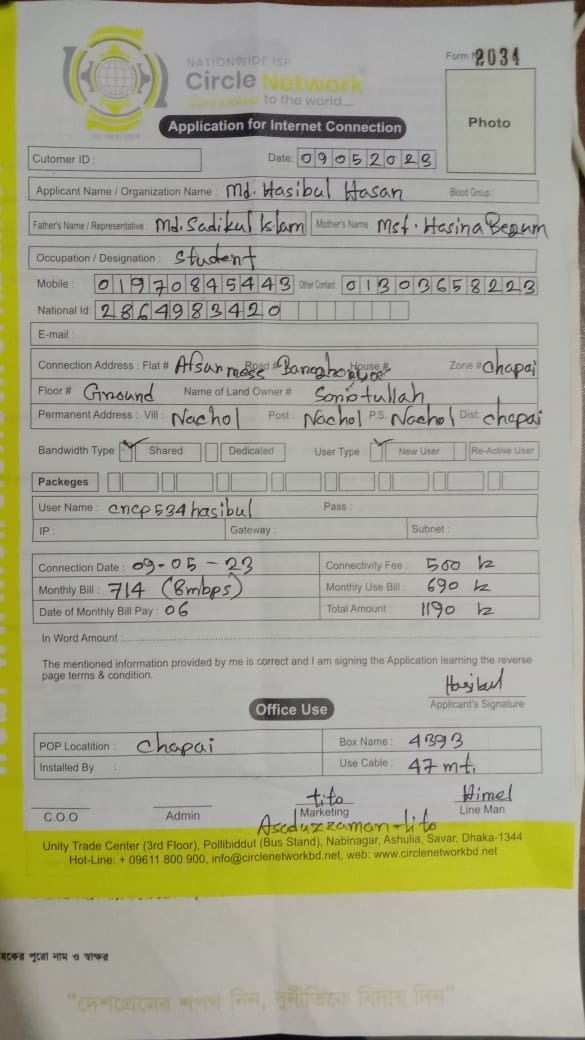 NATIONWIDE ISP
Circle Network
Connected to the world...
Form # 2034
Application for Internet Connection
Photo
Cutomer ID :
Date: 09052023
Applicant Name / Organization Name : Md. Hasibul Hasan Blood Group :
Father's Name / Representative : Md. Sadikul Islam Mother's Name : Mst. Hasina Begum
Occupation / Designation : Student
Mobile : 01970845443 Other Contact 01303658223
National Id: 2864983420
E-mail :
Connection Address : Flat # Afsur mess Road # House # Zone # Chapai
Floor # Ground Name of Land Owner #
Permanent Address : Vill : Nachol Post : Nachol P.S. Nachol Dist: chapai
Bandwidth Type Shared Dedicated User Type : New User Re-Active User
Packeges
User Name : cncp534hasibul Pass :
IP : Gateway : Subnet :
Connection Date : 09-05-23 Connectivity Fee : 500 tk
Monthly Bill : 714 (8mbps) Monthly Use Bill : 690 tk
Date of Monthly Bill Pay : 06 Total Amount : 1190 tk
In Word Amount :
The mentioned information provided by me is correct and I am signing the Application learning the reverse
page terms & condition.
Hasibul
Applicant's Signature
Office Use
POP Locatition : Chapai Box Name : 4393
Installed By : Use Cable : 47 mt.
tito Himel
C.O.O Admin Marketing Line Man
Asaduzzaman-tito
Unity Trade Center (3rd Floor), Pollibiddut (Bus Stand), Nabinagar, Ashulia, Savar, Dhaka-1344
Hot-Line: + 09611 800 900, info@circlenetworkbd.net, web: www.circlenetworkbd.net
হকের পুরো নাম ও স্বাক্ষর
"দেশপ্রেমের শপথ নিন, দুর্নীতিকে বিদায় দিন"